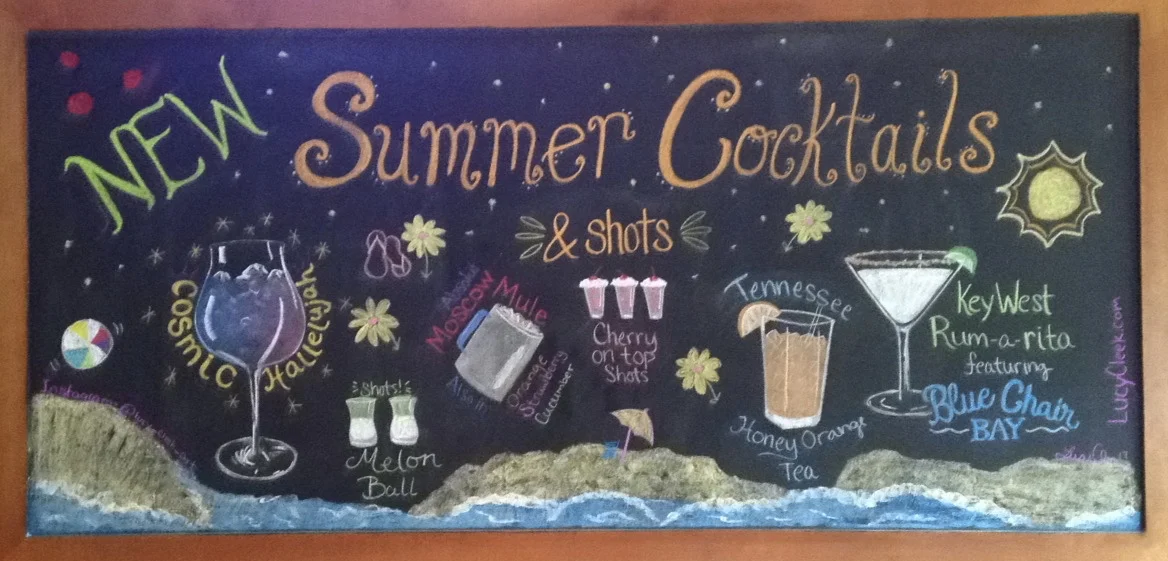 NEW
Summer Cocktails
& shots
COSMIC
Hallelujah
Shots!
Melon
Ball
Moscow
Mule
Also in
Orange
Strawberry
Cucumber
Cherry
on top
Shots
Tennessee
Honey Orange
Tea
Key West
Rum-a-rita
featuring
Blue Chair
BAY
LucyCleek.com
Instagram